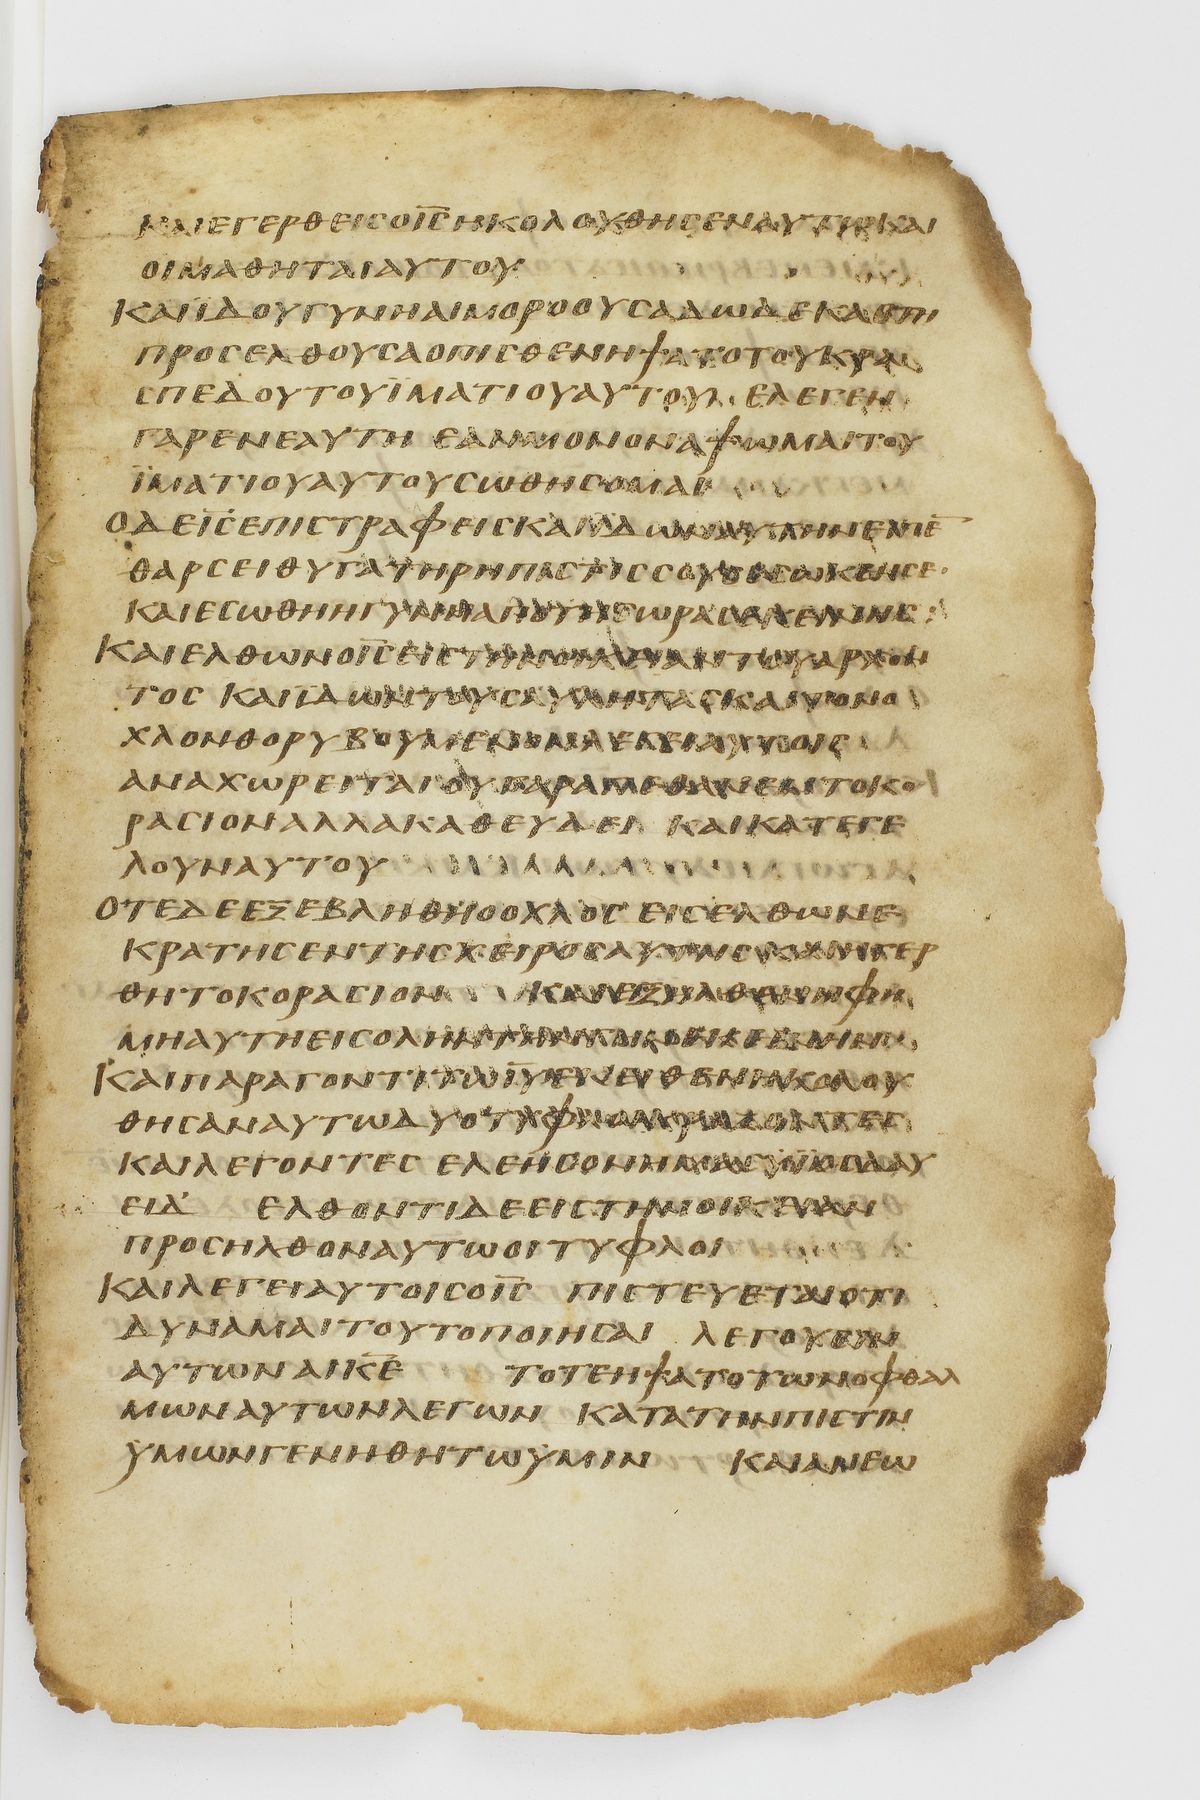 ΚΑΙΕΓΕΡΘΕΙCΟΙ̅C̅ΗΚΟΛΟΥΘΗCΕΝΑΥΤΩΚΑΙ
ΟΙΜΑΘΗΤΑΙΑΥΤΟΥ
ΚΑΙΪΔΟΥΓΥΝΗΑΙΜΟΡΟΟΥCΑΔΩΔΕΚΑΕΤΗ
ΠΡΟCΕΛΘΟΥCΑΟΠΙCΘΕΝΗΨΑΤΟΤΟΥΚΡΑ
CΠΕΔΟΥΤΟΥΪΜΑΤΙΟΥΑΥΤΟΥ ΕΛΕΓΕΝ
ΓΑΡΕΝΕΑΥΤΗ ΕΑΝΜΟΝΟΝΑΨΩΜΑΙΤΟΥ
ΪΜΑΤΙΟΥΑΥΤΟΥCΩΘΗCΟΜΑΙ
ΟΔΕΙ̅C̅ΕΠΙCΤΡΑΦΕΙCΚΑΙΪΔΩΝΑΥΤΗΝΕΙΠΕ̅
ΘΑΡCΕΙΘΥΓΑΤΗΡΗΠΙCΤΙCCΟΥCΕCΩΚΕΝCΕ·
ΚΑΙΕCΩΘΗΗΓΥΝΗΑΠΟΤΗCΩΡΑCΕΚΕΙΝΗC:
ΚΑΙΕΛΘΩΝΟΙ̅C̅ΕΙCΤΗΝΟΙΚΙΑΝΤΟΥΑΡΧΟΝ
ΤΟC ΚΑΙΪΔΩΝΤΟΥCΑΥΛΗΤΑCΚΑΙΤΟΝΟ
ΧΛΟΝΘΟΡΥΒΟΥΜΕΝΟΝΛΕΓΕΙΑΥΤΟΙC
ΑΝΑΧΩΡΕΙΤΑΙ ΟΥΓΑΡΑΠΕΘΑΝΕΝΤΟΚΟ
ΡΑCΙΟΝΑΛΛΑΚΑΘΕΥΔΕΙ ΚΑΙΚΑΤΕΓΕ
ΛΟΥΝΑΥΤΟΥ
ΟΤΕΔΕΕΞΕΒΛΗΘΗΟΟΧΛΟC ΕΙCΕΛΘΩΝΕ
ΚΡΑΤΗCΕΝΤΗCΧΕΙΡΟCΑΥΤΗCΚΑΙΗΓΕΡ
ΘΗΤΟΚΟΡΑCΙΟΝ ΚΑΙΕΞΗΛΘΕΝΗΦΗ
ΜΗΑΥΤΗΕΙCΟΛΗΝΤΗΝΓΗΝΕΚΕΙΝΗΝ
ΚΑΙΠΑΡΑΓΟΝΤΙΤΩΙ̅Υ̅ΕΚΕΙΘΕΝΗΚΟΛΟΥ
ΘΗCΑΝΑΥΤΩΔΥΟΤΥΦΛΟΙΚΡΑΖΟΝΤΕC
ΚΑΙΛΕΓΟΝΤΕC ΕΛΕΗCΟΝΗΜΑCΥΪΟCΔΑΥ
ΕΙΔ' ΕΛΘΟΝΤΙΔΕΕΙCΤΗΝΟΙΚΕΙΑΝ
ΠΡΟCΗΛΘΟΝΑΥΤΩΟΙΤΥΦΛΟΙ
ΚΑΙΛΕΓΕΙΑΥΤΟΙCΟΙ̅C̅ ΠΙCΤΕΥΕΤΑΙΟΤΙ
ΔΥΝΑΜΑΙΤΟΥΤΟΠΟΙΗCΑΙ ΛΕΓΟΥCΙΝ
ΑΥΤΩΝΑΙΚ̅Ε̅ ΤΟΤΕΗΨΑΤΟΤΩΝΟΦΘΑΛ
ΜΩΝΑΥΤΩΝΛΕΓΩΝ ΚΑΤΑΤΗΝΠΙCΤΙΝ
ΥΜΩΝΓΕΝΗΘΗΤΩΥΜΙΝ ΚΑΙΑΝΕΩ